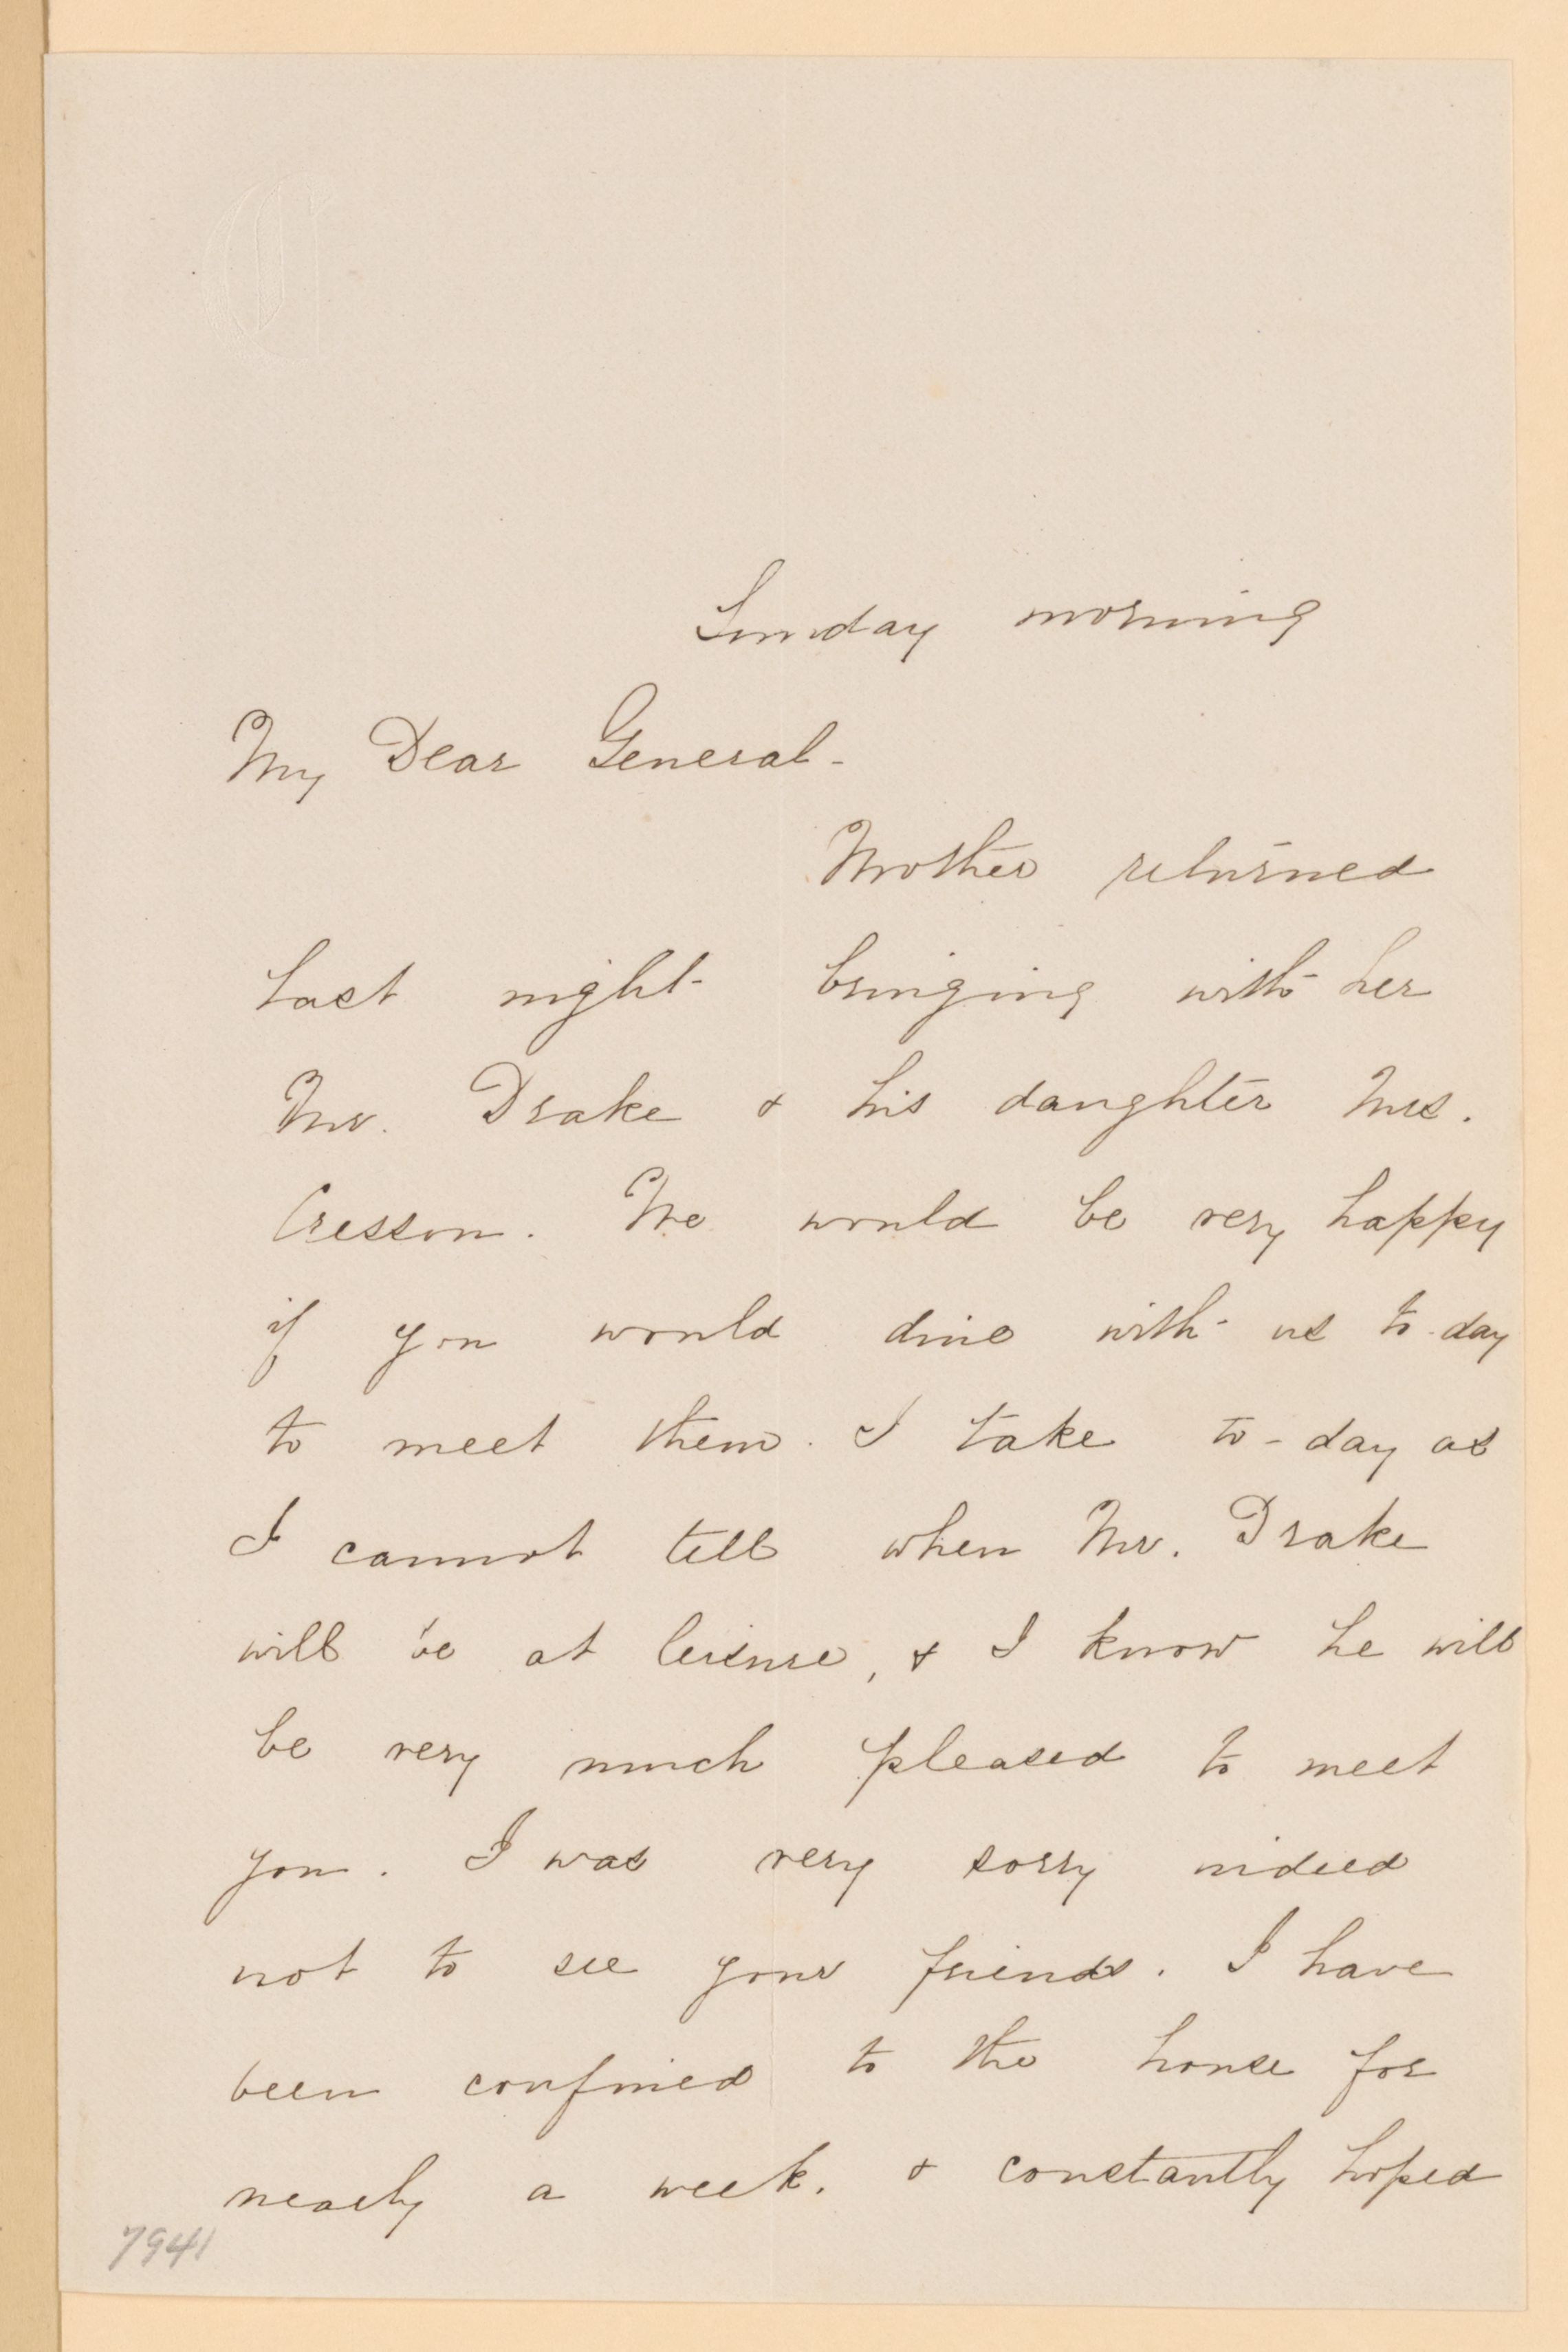 Sunday morning
My Dear General-
Mother returned
last night bringing with her
Mr. Drake & his daughter Mrs.
Cresson. We would be very happy
if you would dine with us to-day
to meet them. I take to-day as
I cannot tell when Mr. Drake
will be at leisure, & I know he will
be very much pleased to meet
you. I was very sorry indeed
not to see your friends. I have
been confined to the house for
nearly a week, & constantly hoped
7941